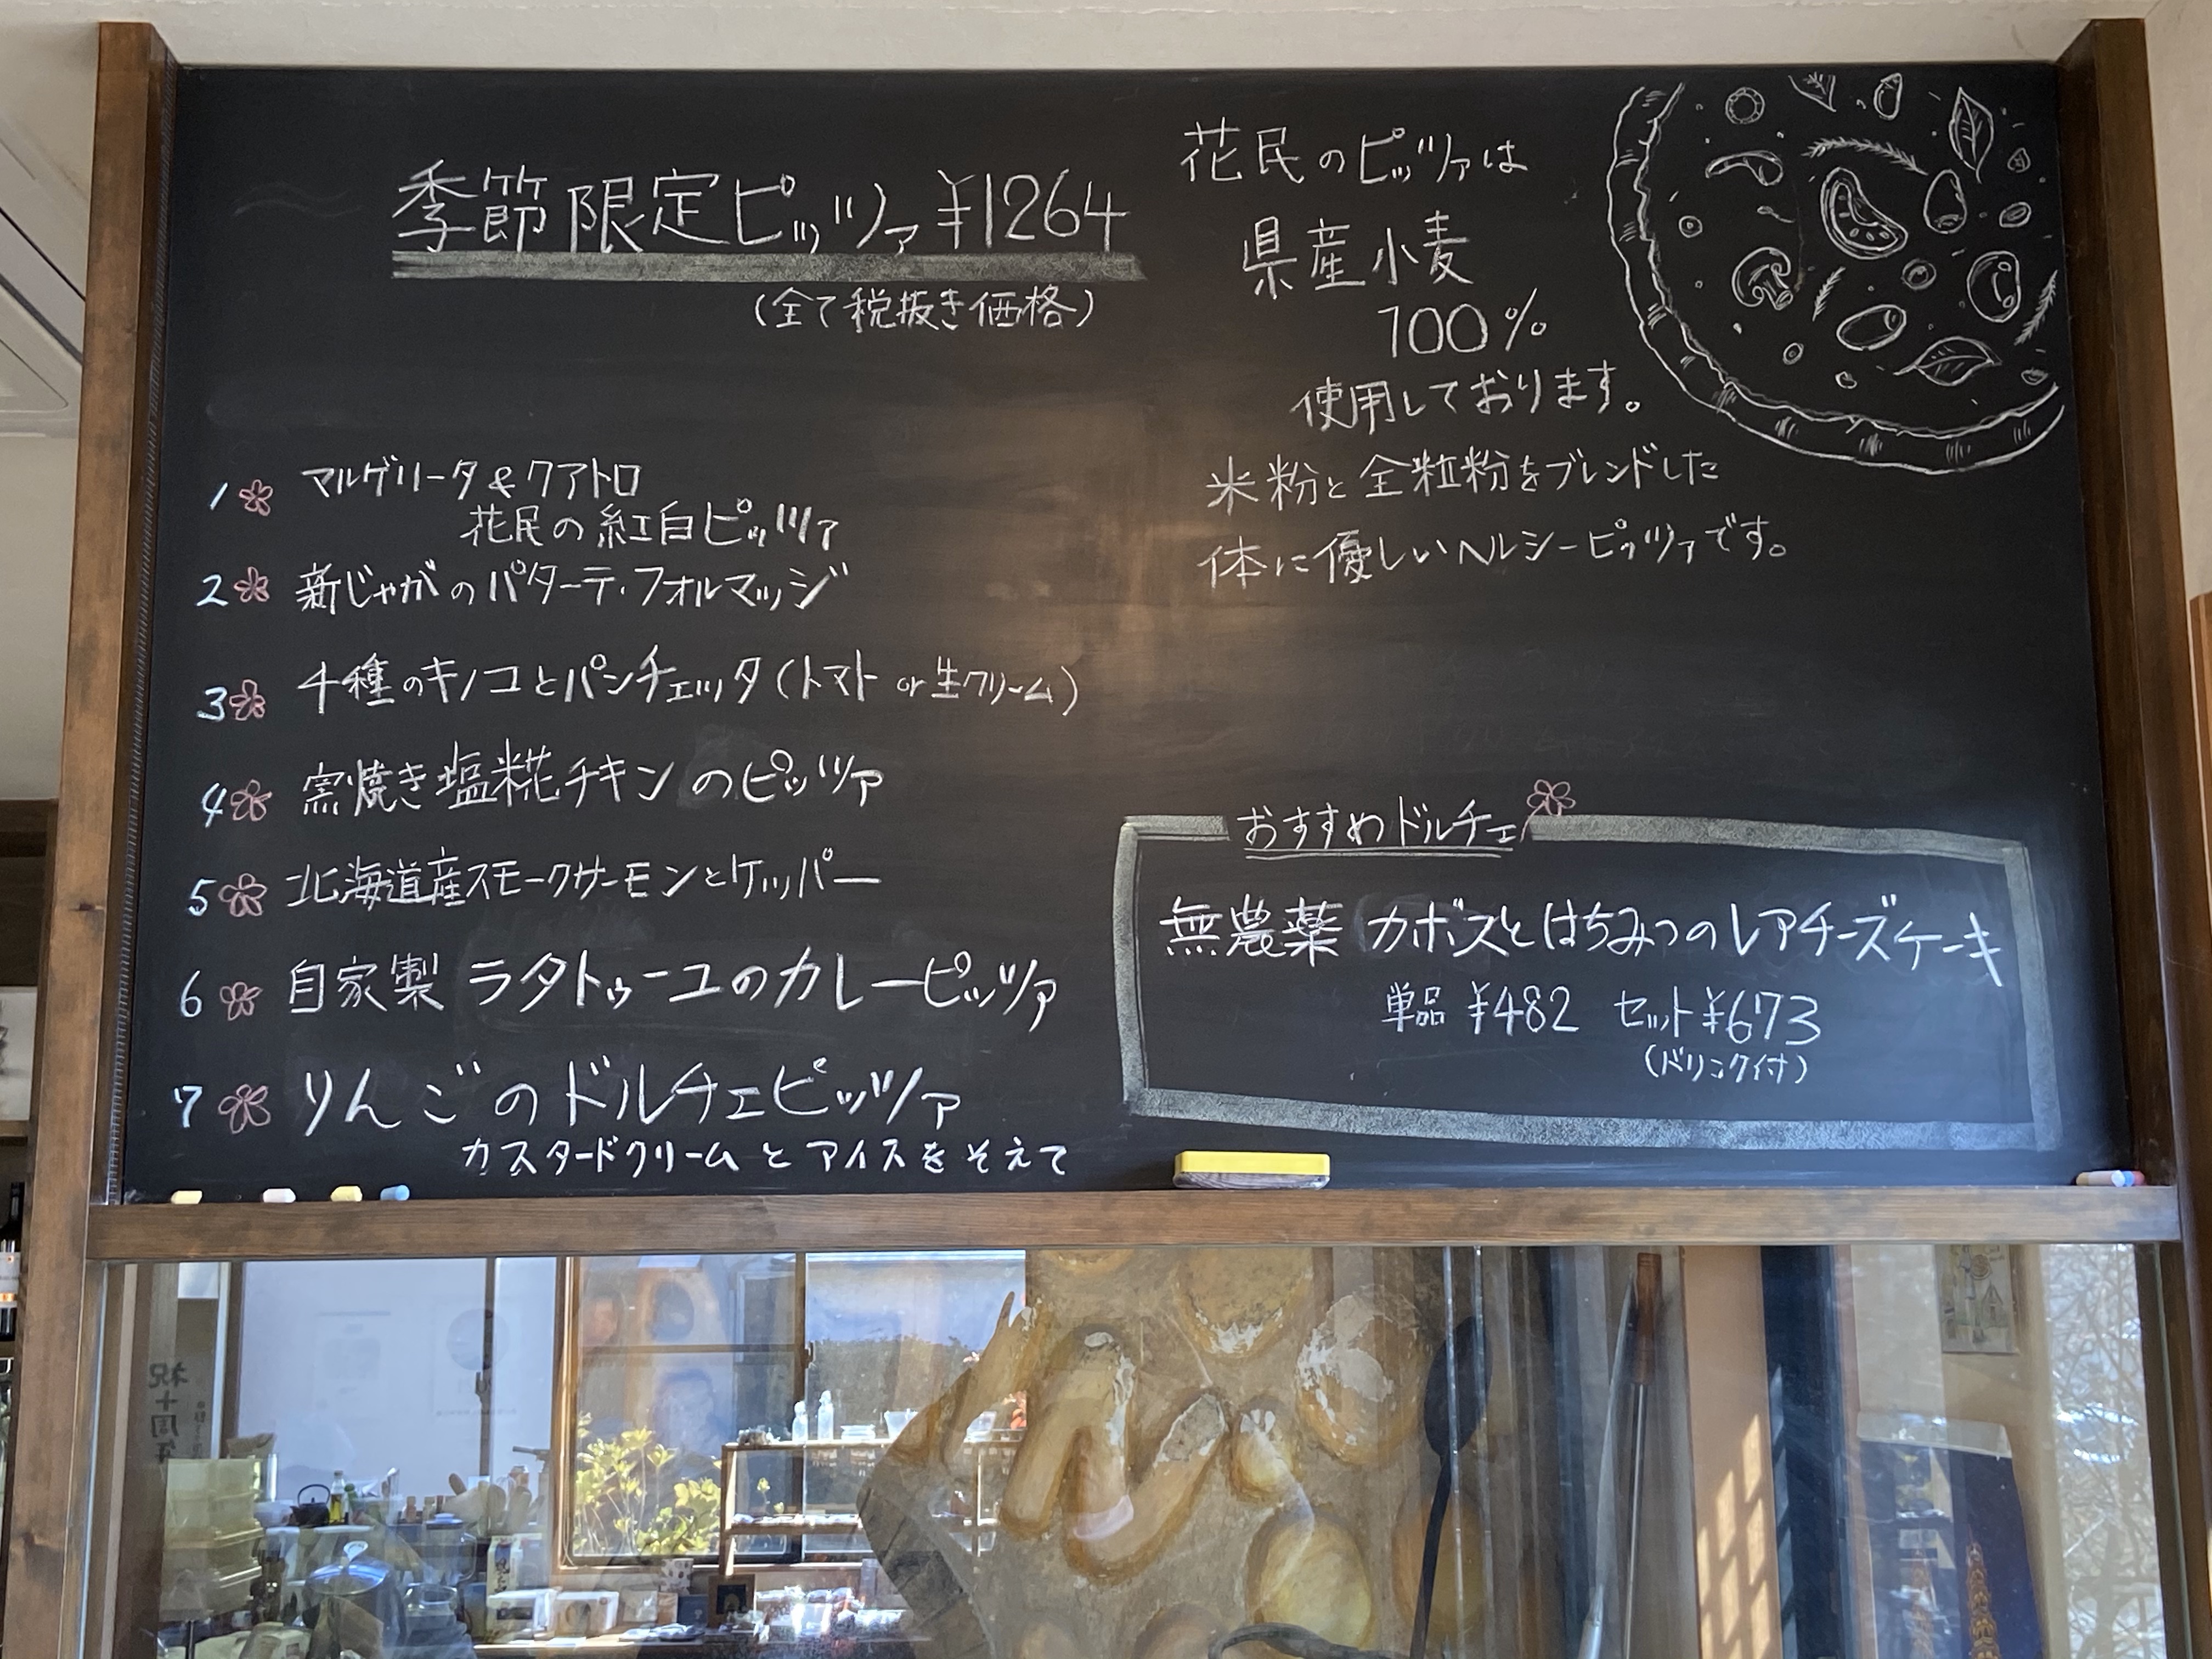 季節限定ピッツァ ¥1264
(全て税抜き価格)
1 マルゲリータ & クアトロ
花民の紅白ピッツァ
2 新じゃがのパターテ・フォルマッジ
3 十種のキノコとパンチェッタ(トマト or 生クリーム)
4 窯焼き塩糀チキンのピッツァ
5 北海道産スモークサーモンとケッパー
6 自家製 ラタトゥーユのカレーピッツァ
7 りんごのドルチェピッツァ
カスタードクリームとアイスをそえて
花民のピッツァは
県産小麦
100%
使用しております。
米粉と全粒粉をブレンドした
体に優しいヘルシーピッツァです。
おすすめドルチェ
無農薬 カボスとはちみつのレアチーズケーキ
単品 ¥482 セット¥673
(ドリンク付)
祝十周年